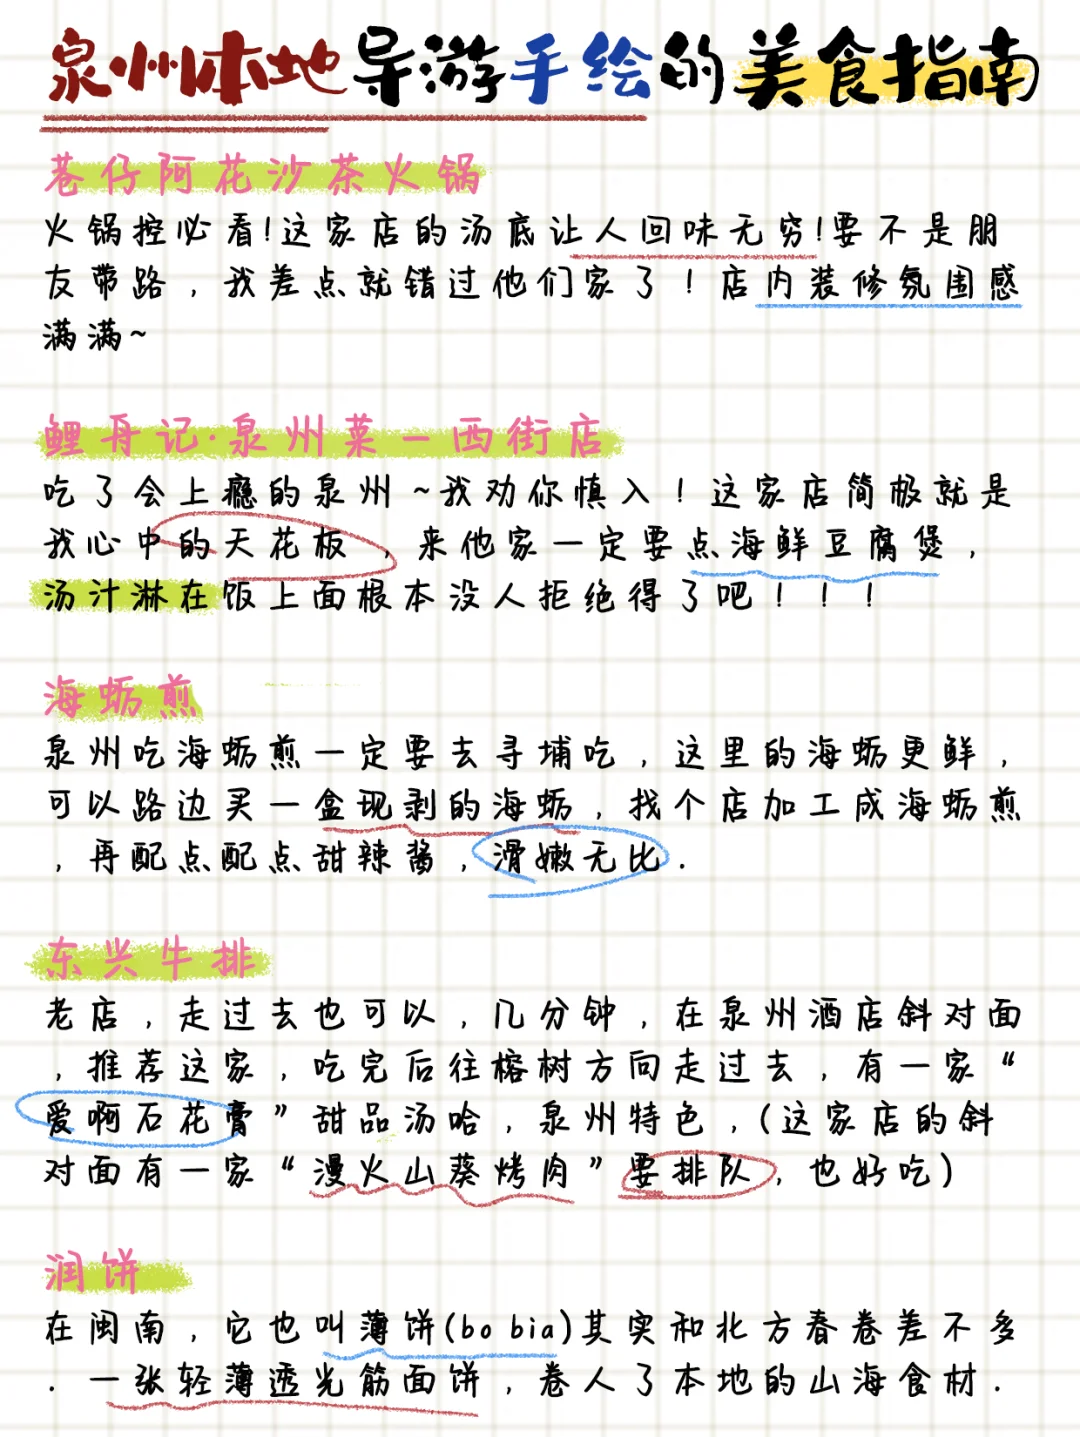 泉州本地导游手绘的美食指南
巷仔阿花沙茶火锅
火锅控必看!这家店的汤底让人回味无穷!要不是朋
友带路，我差点就错过他们家了！店内装修氛围感
满满~
鲤舟记·泉州菜－西街店
吃了会上瘾的泉州~我劝你慎入！这家店简极就是
我心中的天花板，来他家一定要点海鲜豆腐煲，
汤汁淋在饭上面根本没人拒绝得了吧！！！
海蛎煎
泉州吃海蛎煎一定要去寻埔吃，这里的海蛎更鲜，
可以路边买一盒现剥的海蛎，找个店加工成海蛎煎
，再配点配点甜辣酱，滑嫩无比．
东兴牛排
老店，走过去也可以，几分钟，在泉州酒店斜对面
，推荐这家，吃完后往榕树方向走过去，有一家“
爱啊石花膏”甜品汤哈，泉州特色，(这家店的斜
对面有一家“漫火山葵烤肉”要排队，也好吃)
润饼
在闽南，它也叫薄饼(bo bia)其实和北方春卷差不多
．一张轻薄透光筋面饼，卷人了本地的山海食材．